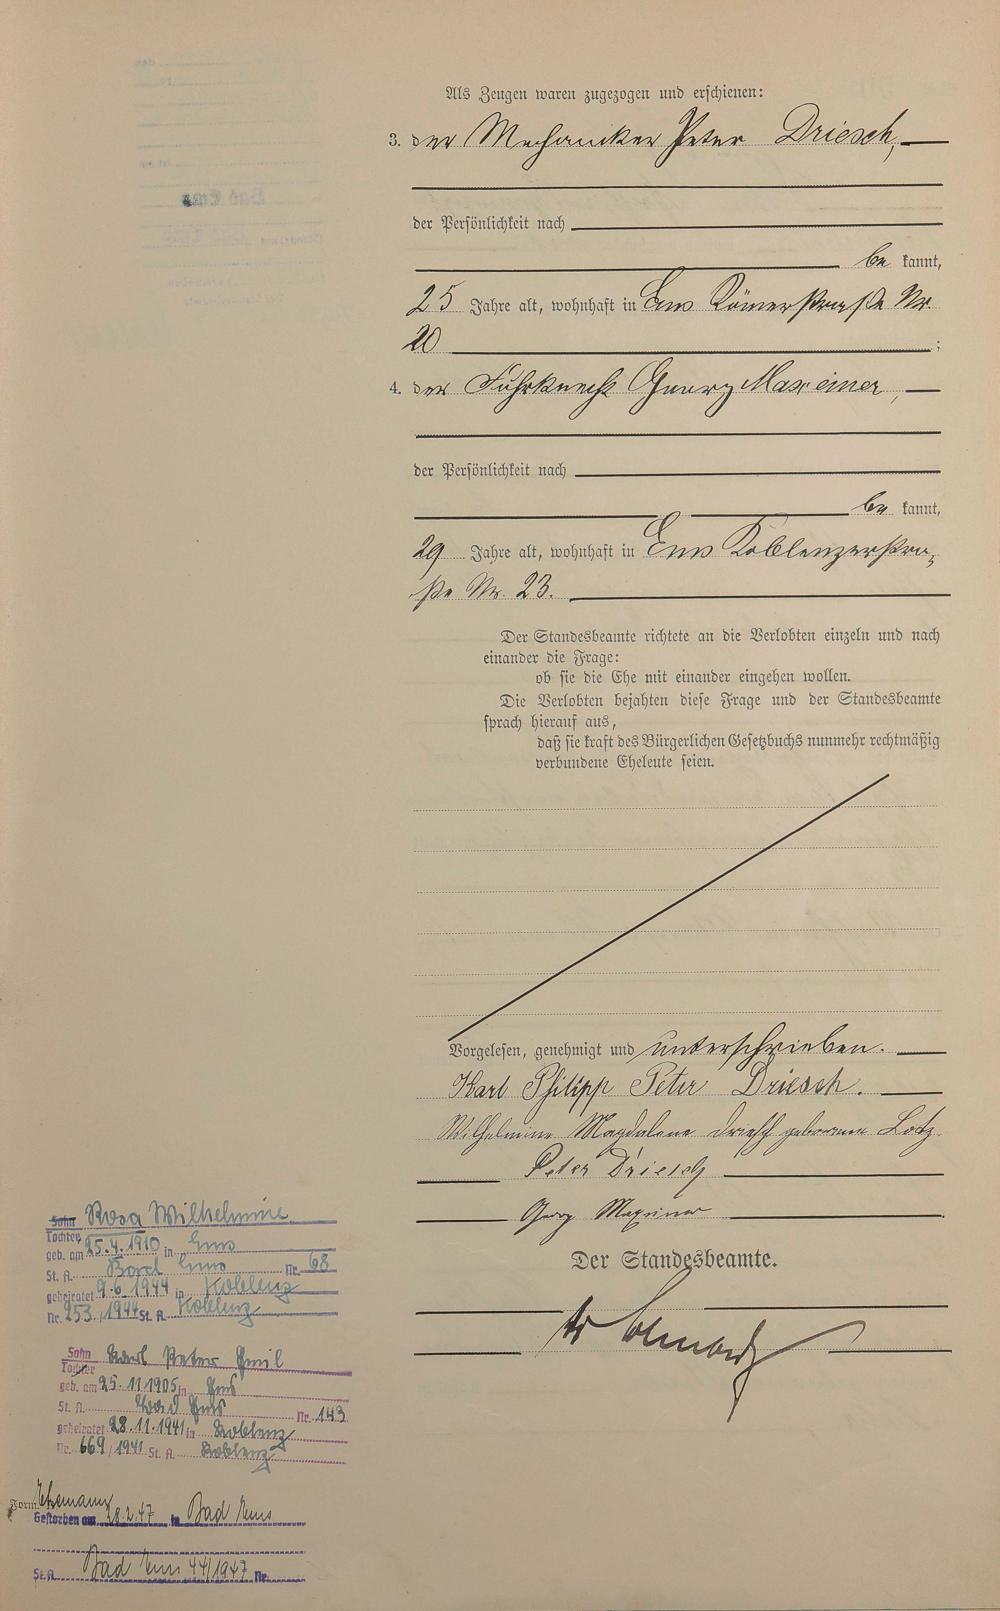 Als Zeugen waren zugezogen und erschienen:
3. der Mechaniker Peter Driesch,
der Persönlichkeit nach
be kannt,
25 Jahre alt, wohnhaft in Ems Römerstraße Nr.
20 ;
4. der Fuhrknecht Georg Maxeiner,
der Persönlichkeit nach
be kannt,
29 Jahre alt, wohnhaft in Ems Koblenzerstra-
ße Nr. 23.
Der Standesbeamte richtete an die Verlobten einzeln und nach
einander die Frage:
ob sie die Ehe mit einander eingehen wollen.
Die Verlobten bejahten diese Frage und der Standesbeamte
sprach hierauf aus,
daß sie kraft des Bürgerlichen Gesetzbuchs nunmehr rechtmäßig
verbundene Eheleute seien.
Vorgelesen, genehmigt und unterschrieben.
Karl Philipp Peter Driesch.
Wilhelmine Magdalene Driesch geborene Lotz.
Peter Driesch
Georg Maxeiner
Der Standesbeamte.
Sohn Rosa Wilhelmine
Tochter
geb. am 25.4.1910 in Ems
St. A. Bad Ems Nr. 68
geheiratet 9.6.1944 in Koblenz
Nr. 253/1944 St. A. Koblenz
Sohn Karl Peter Emil
Tochter
geb. am 25.11.1905 in Ems
St. A. Bad Ems Nr. 143
geheiratet 28.11.1941 in Koblenz
Nr. 669/1941 St. A. Koblenz
Form. Ehemann
Gestorben am 28.2.47 in Bad Ems
St. A. Bad Ems 44/1947 Nr.